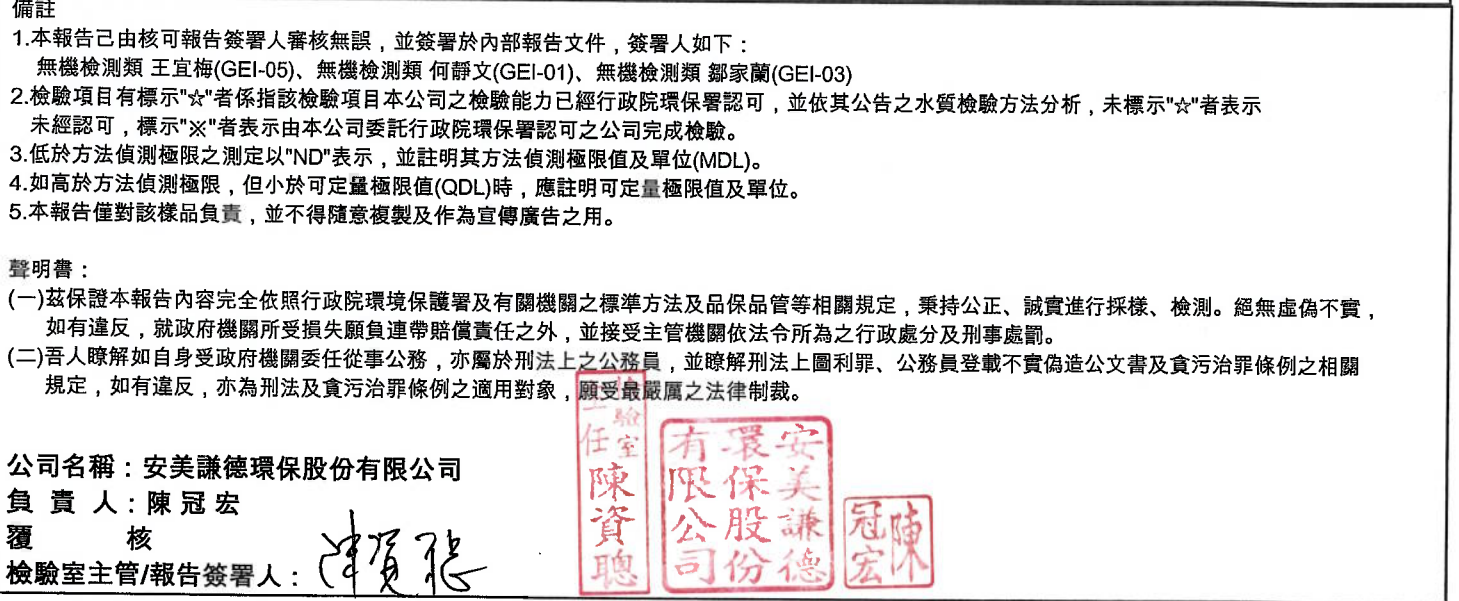 備註
1.本報告已由核可報告簽署人審核無誤，並簽署於內部報告文件，簽署人如下：
無機檢測類 王宜梅(GEI-05)、無機檢測類 何靜文(GEI-01)、無機檢測類 鄒家蘭(GEI-03)
2.檢驗項目有標示"☆"者係指該檢驗項目本公司之檢驗能力已經行政院環保署認可，並依其公告之水質檢驗方法分析，未標示"☆"者表示
未經認可，標示"※"者表示由本公司委託行政院環保署認可之公司完成檢驗。
3.低於方法偵測極限之測定以"ND"表示，並註明其方法偵測極限值及單位(MDL)。
4.如高於方法偵測極限，但小於可定量極限值(QDL)時，應註明可定量極限值及單位。
5.本報告僅對該樣品負責，並不得隨意複製及作為宣傳廣告之用。
聲明書：
(一)茲保證本報告內容完全依照行政院環境保護署及有關機關之標準方法及品保品管等相關規定，秉持公正、誠實進行採樣、檢測。絕無虛偽不實，
如有違反，就政府機關所受損失願負連帶賠償責任之外，並接受主管機關依法令所為之行政處分及刑事處罰。
(二)吾人瞭解如自身受政府機關委任從事公務，亦屬於刑法上之公務員，並瞭解刑法上圖利罪、公務員登載不實偽造公文書及貪污治罪條例之相關
規定，如有違反，亦為刑法及貪污治罪條例之適用對象，願受最嚴厲之法律制裁。
公司名稱：安美謙德環保股份有限公司
負責人：陳冠宏
覆核
檢驗室主管/報告簽署人：陳資聰
檢驗室
主任陳資聰
安美謙德
環保股份
有限公司
陳
冠宏